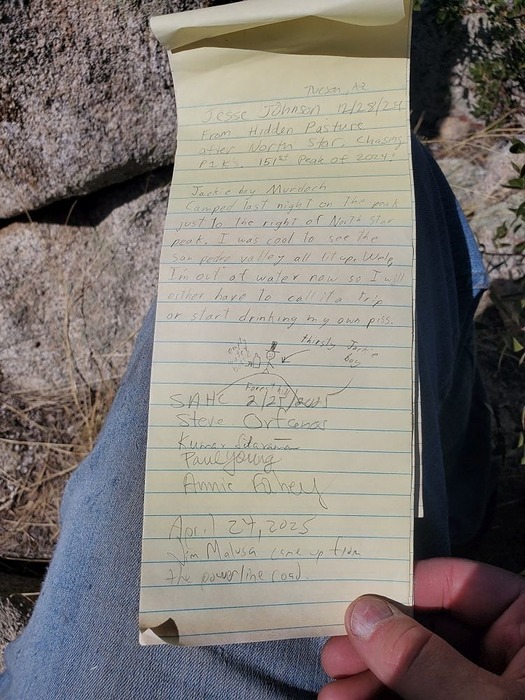 Tucson, AZ
Jesse Johnson 12/28/24
From Hidden Pasture
after North Star. Chasing
P1K's. 151st Peak of 2024!
Jackie boy Murdoch
Camped last night on the peak
just to the right of North Star
peak. I was cool to see the
San pedro valley all lit up. Welp
I'm out of water now so I will
either have to call it a trip
or start drinking my own piss.
thirsty Jackie
boy
SAHC 2/25/2025
Steve
Kumar
Paul Young
Annie Fahey
April 24, 2025
Jim Malusa came up from
the powerline road.